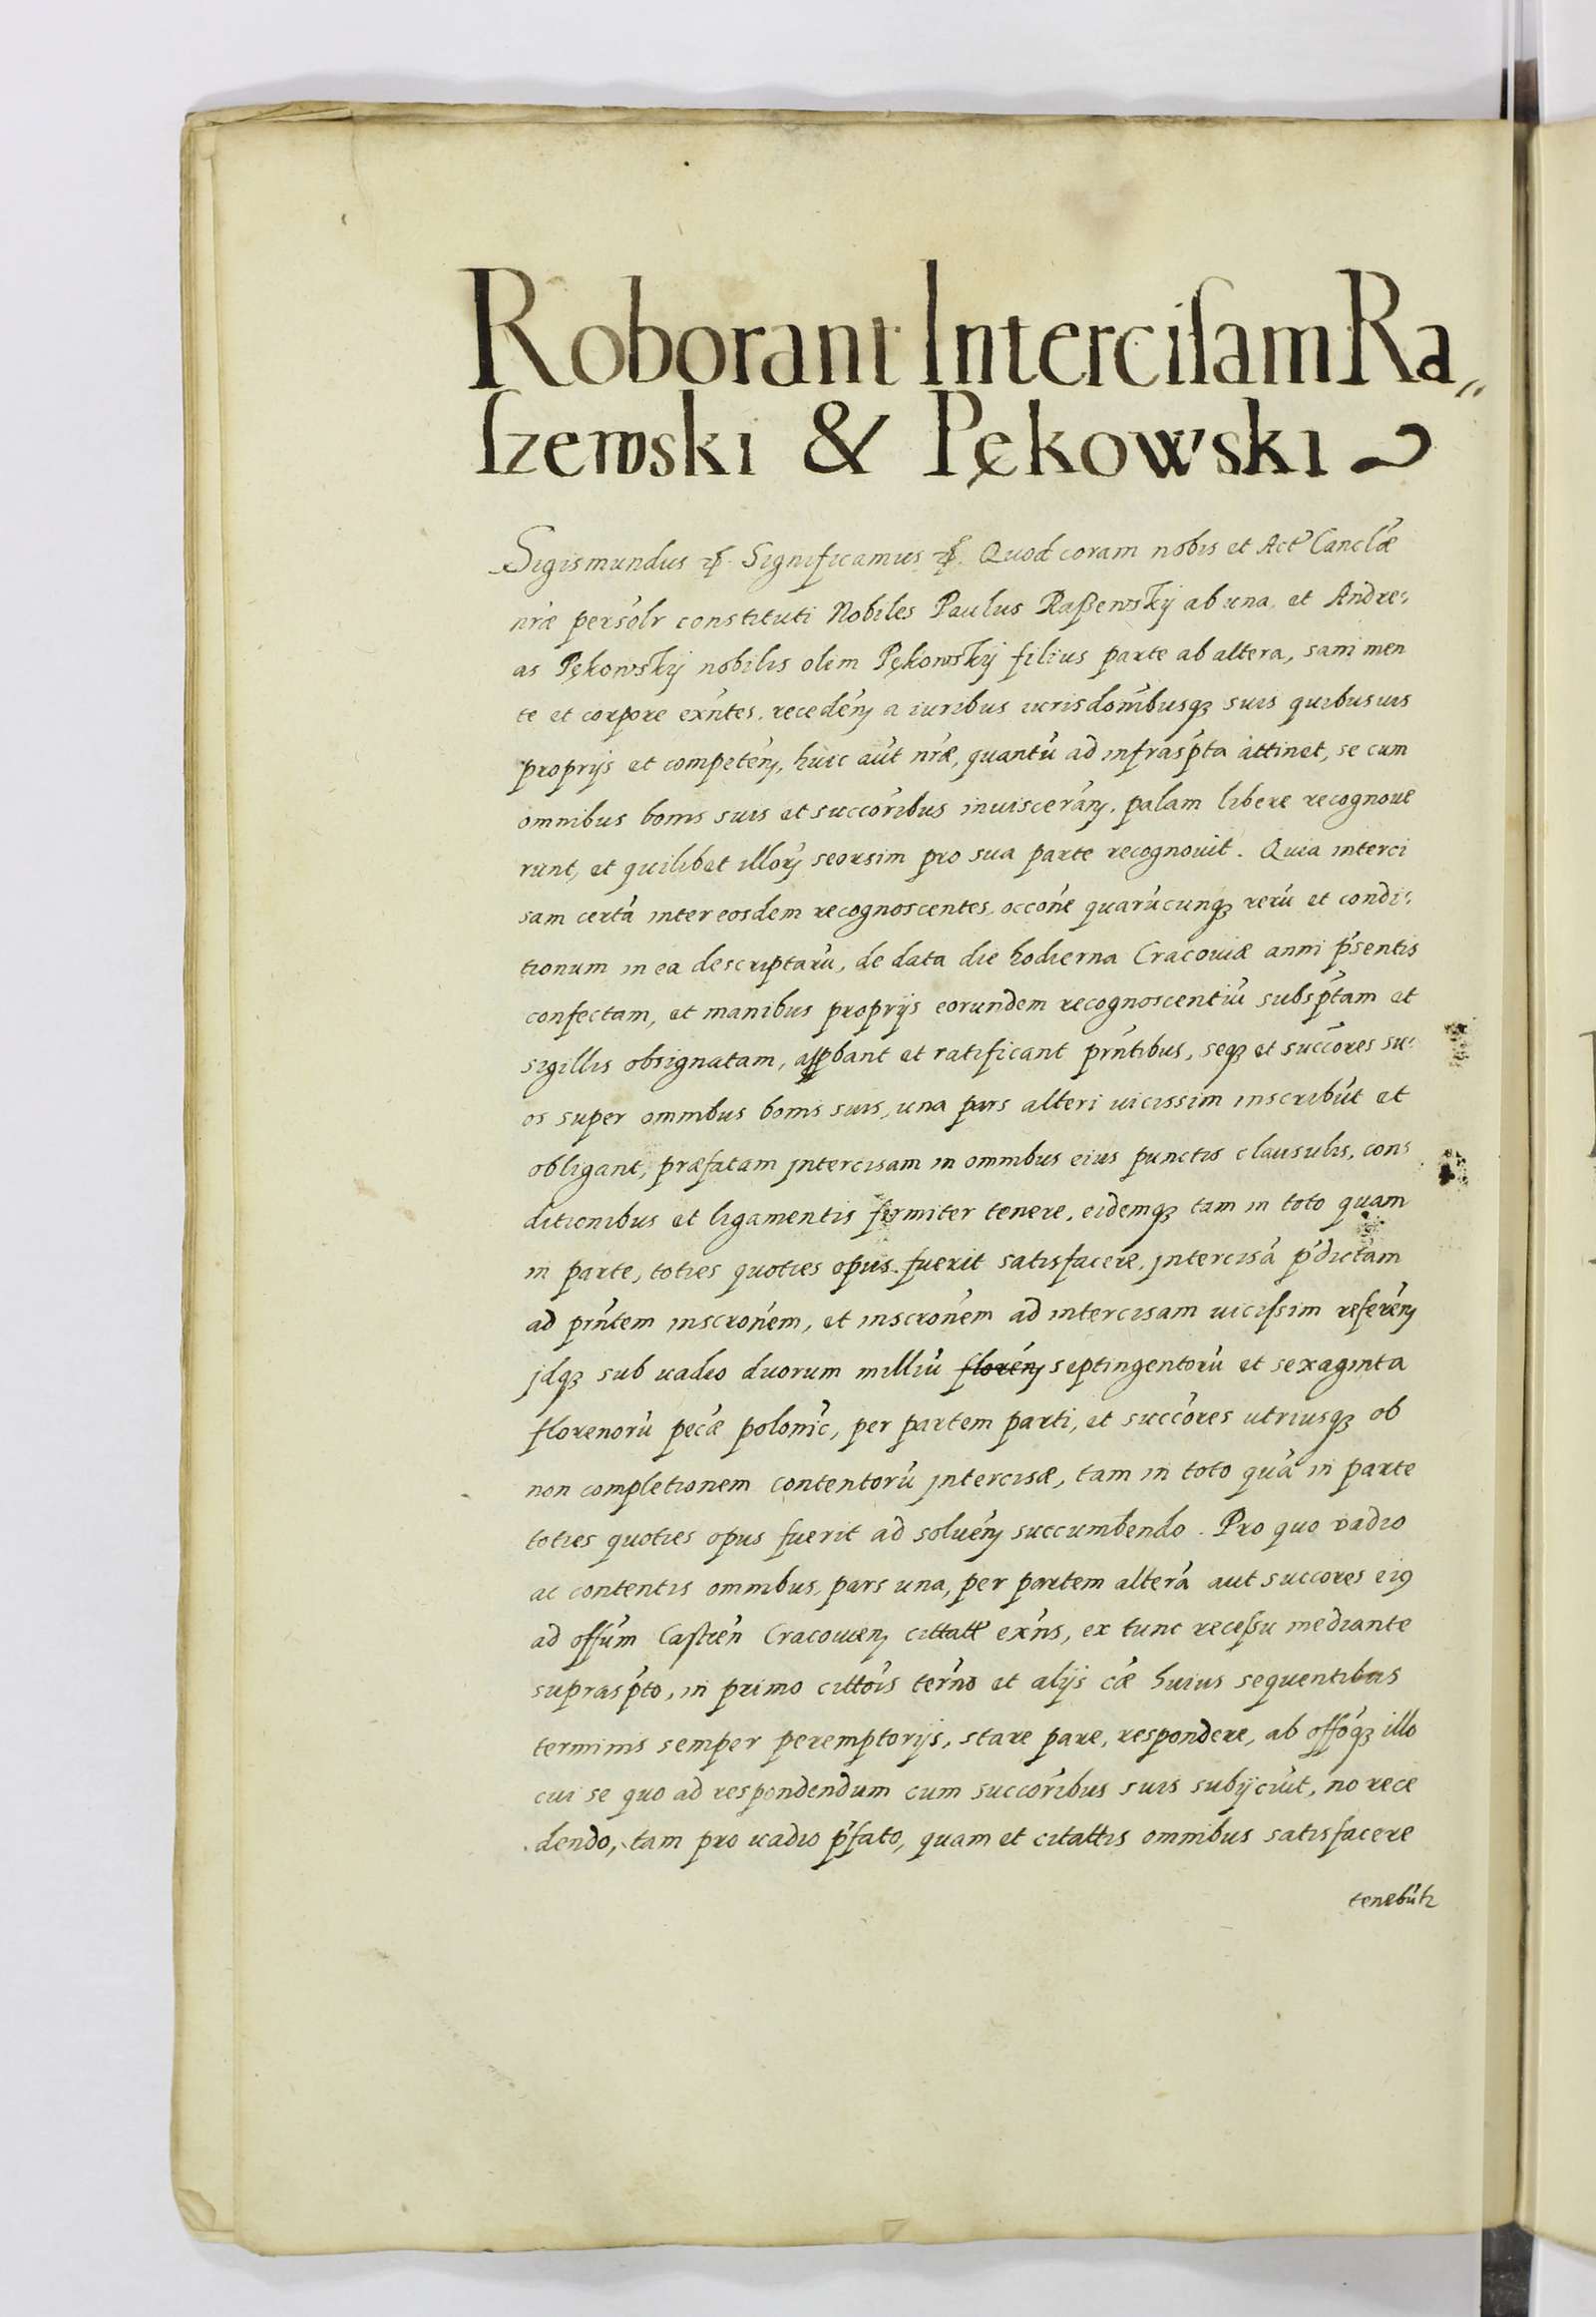 Roborant Interciſam Ra„
ſzewski & Pękowski
Sigismundus Significamus Quod coram nobis et Act Canclæ
nræ persolr constituti Nobiles Paulus Raßewskij ab una, et Andre:
as Pękowskij nobilis olim Pękowskij filius parte ab altera, sani men
te et corpore exñtes, recedeñ a iuribus iurisdoñibusqꝫ suis quibusuis
proprijs et competeñ, huic aũt nræ, quantũ ad infraspta attinet, se cum
omnibus bonis suis et succoribus inuisceran, palam libere recognoue
runt, et quilibet illoꝝ seorsim pro sua parte recognouit. Quia interci
sam certã inter eosdem recognoscentes, occoñe quarũcunqꝫ rerũ et condi:
tionum in ea descriptarũ, de data die hodierna Cracouiæ anni p̃sentis
confectam, et manibus proprijs eorundem recognoscentiũ subsptam et
sigillis obsignatam, appbant et ratificant prñtibus, seqꝫ et succores su:
os super omnibus bonis suis, una pars alteri uicissim inscribũt et
obligant, præfatam jntercisam in omnibus eius punctis clausulis, con:
ditionibus et ligamentis firmiter tenere, eidemqꝫ tam in toto quam
in parte, toties quoties opus fuerit satisfacere, jntercisã p̃dictam
ad prñtem inscroñem, et inscroñem ad intercisam uicissim refereñ
jdqꝫ sub uadio duorum milliũ floreñ septingentorũ et sexaginta
florenorũ pecæ polonic, per partem parti, et succores utriusqꝫ ob
non completionem contentorũ jntercisæ, tam in toto quã in parte
toties quoties opus fuerit ad solueñ succumbendo. Pro quo vadio
ac contentis omnibus, pars una, per partem alterã aut succores eiꝰ
ad offũm Castreñ Cracouieñ cittatt exñs, ex tunc recessu mediante
supraspto, in primo cittõis terño et alijs cæ huius sequentibus
terminis semper peremptorijs, stare pare, respondere, ab offoqꝫ illo
cui se quo ad respondendum cum succoribus suis subijciũt, no rece
dendo, tam pro uadio p̃fato, quam et citattis omnibus satisfacere
tenebũtr